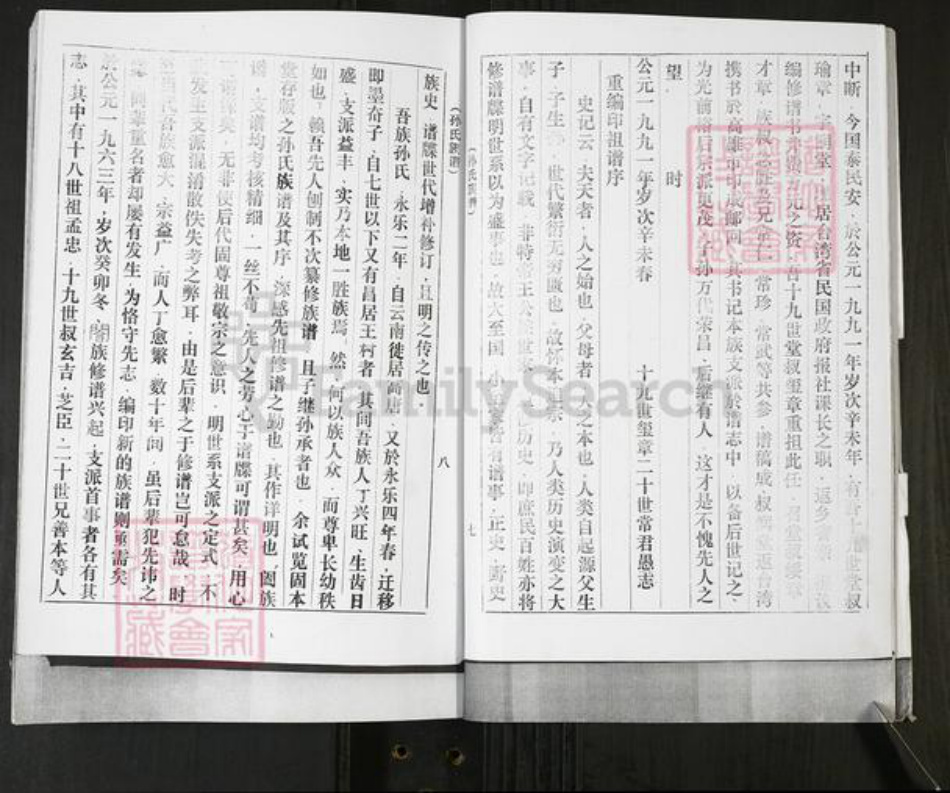 中断．今国泰民安．於公元一九九一年岁次辛未年．有 世堂叔
瑜章．宇同堂．居台湾省民国政府报社课长之职．返乡
编修谱书 元之资．吾十九世堂叔玺章重担此任
才章．族叔 及兄 常珍．常武等共参．谱稿成．叔 堂返台湾
携书於高雄市印成邮回．其书记本族支派於谱志中．以备后世记之．
为光前裕后宗派更茂．子孙万代荣昌．后继有人．这才是不愧先人之
望．
时
公元一九九一年岁次辛未春 十九世玺章二十世常君愚志
重编印祖谱序
史记云．夫天者．人之始也．父母者．人之本也．人类自起源父生
子．子生 ．世代繁衍无穷匮也．故怀本 宗．乃人类历史演变之大
事．自有文字记载．非特帝王公 世系 历史．即庶民百姓亦将
修谱牒明世系以为盛事也．故大至国．小 家皆有谱事．正史．野史
（孙氏族谱）
七
（孙氏族谱）
八
族史．谱牒世代增补修订．且明之传之也．
吾族孙氏．永乐二年．自云南徙居高唐．又於永乐四年春．迁移
即墨夼子．自七世以下又有昌居王柯者．其间吾族人丁兴旺．生齿日
盛．支派益丰．实乃本地一胜族焉．然．何以族人众．而尊卑长幼秩
如也．赖吾先人刱制不次纂修族谱．且子继孙承者也．余试览固本
堂存版之孙氏族谱及其序．深感先祖修谱之勤也．其作详明也．阖族
谱．支谱均考核精细．一丝不苟．先人之劳心于谱牒可谓甚矣．用心
可谓深矣．无非使后代固尊祖敬宗之意识．明世系支派之定式．不
致发生支派混淆散佚失考之弊耳．由是后辈之于修谱岂可怠哉．时
至当代吾族愈大．宗益广．而人丁愈繁．数十年间．虽后辈犯先讳之
．同辈重名者却屡有发生．为恪守先志．编印新的族谱则亟需矣．
於公元一九六三年．岁次癸卯冬．阖族修谱兴起．支派首事者各有其
志．其中有十八世祖孟忠．十九世叔玄吉．芝臣．二十世兄善本等人
FamilySearch